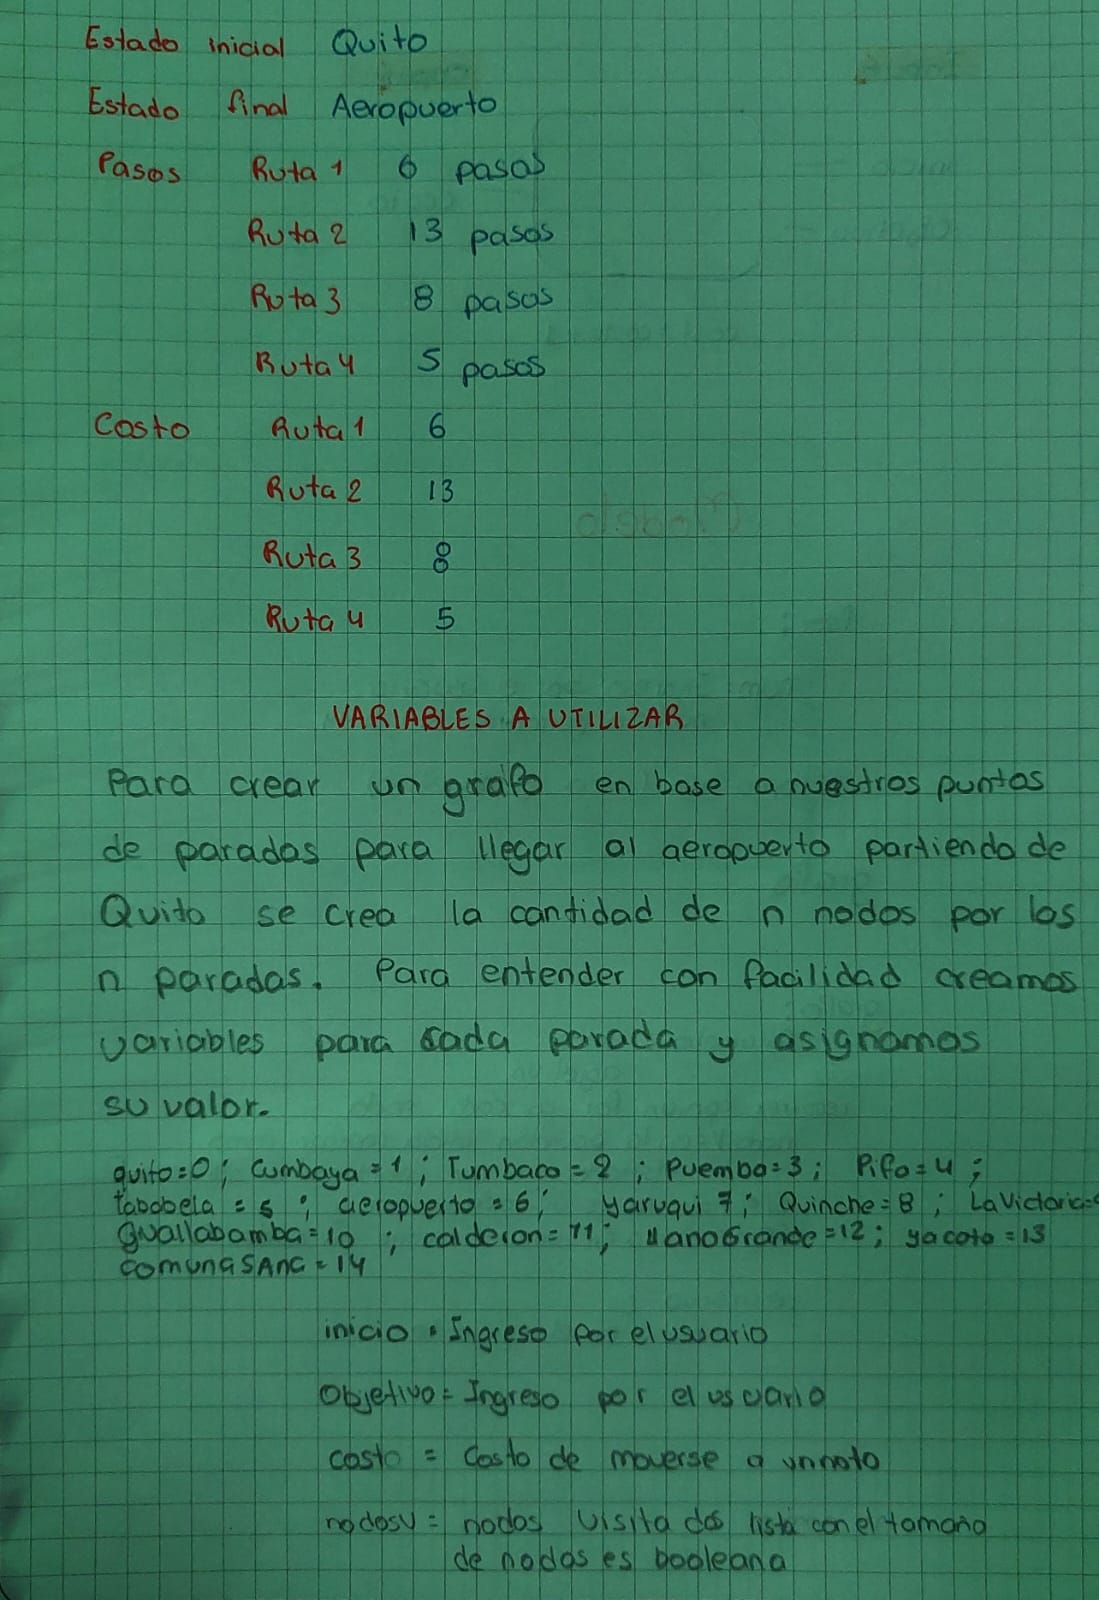 Estado inicial Quito
Estado final Aeropuerto
Pasos Ruta 1 6 pasos
Ruta 2 13 pasos
Ruta 3 8 pasos
Ruta 4 5 pasos
Costo Ruta 1 6
Ruta 2 13
Ruta 3 8
Ruta 4 5
VARIABLES A UTILIZAR
Para crear un grafo en base a nuestros puntos
de paradas para llegar al aeropuerto partiendo de
Quito se crea la cantidad de n nodos por los
n paradas. Para entender con facilidad creamos
variables para cada parada y asignamos
su valor.
quito=0; Cumbaya=1; Tumbaco=2; Puembo=3; Pifo=4;
tababela=5; aeropuerto=6; yaruqui 7; Quinche=8; La Victoria=9
guallabamba=10; calderon=11; llanoGrande=12; yacoto=13
comunaSAna=14
inicio = Ingreso por el usuario
Objetivo = Ingreso por el usuario
costo = Costo de moverse a un noto
nodosV = nodos visitados lista con el tamaño
de nodos es booleana